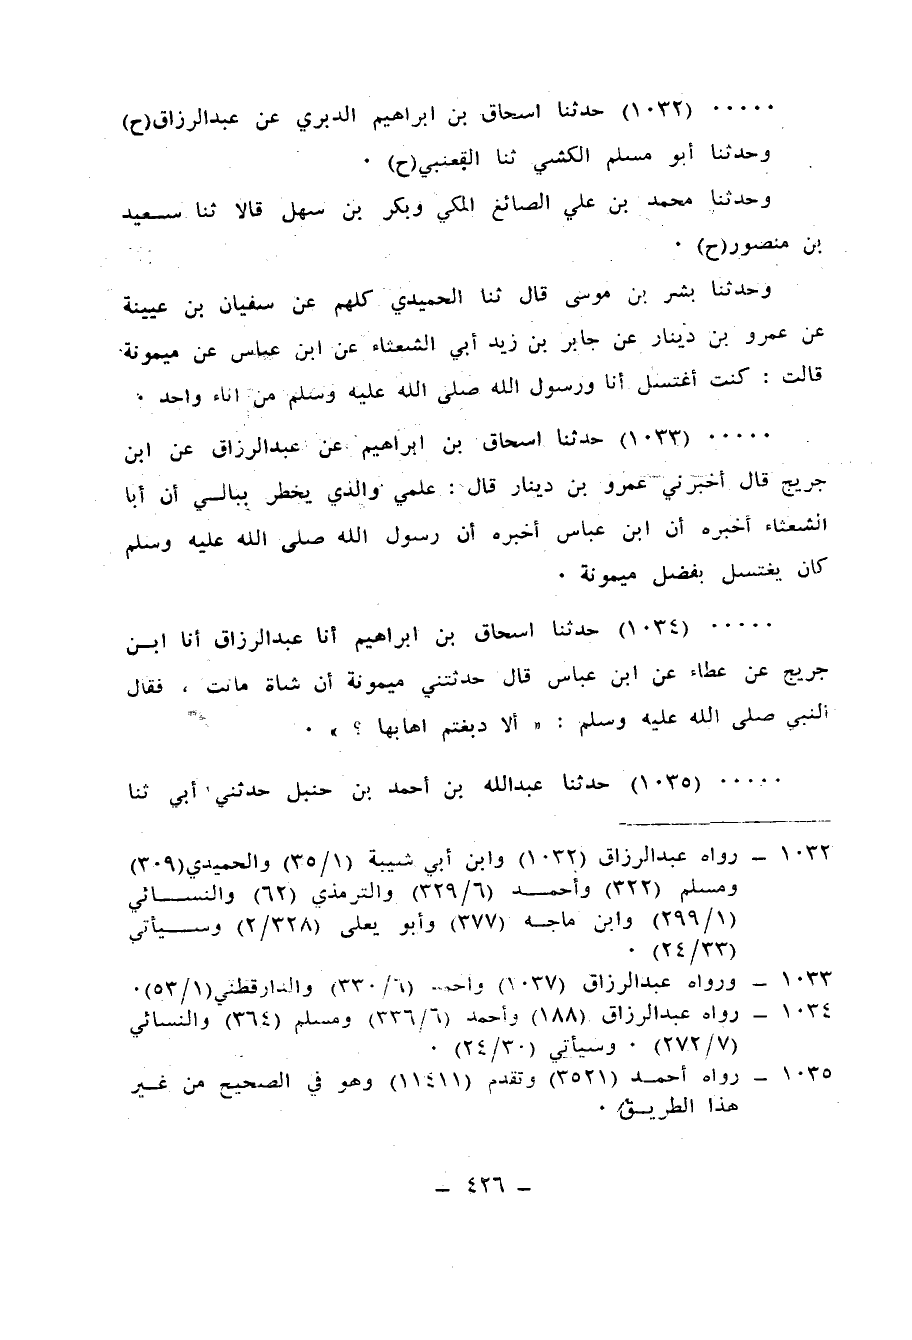 ٠٠٠٠٠ (١٠٣٢) حدثنا اسحاق بن ابراهيم الدبري عن عبدالرزاق(ح)
وحدثنا أبو مسلم الكشي ثنا القعنبي(ح) ٠
وحدثنا محمد بن علي الصائغ المكي وبكر بن سهل قالا ثنا سعيد
بن منصور(ح) ٠
وحدثنا بشر بن موسى قال ثنا الحميدي كلهم عن سفيان بن عيينة
عن عمرو بن دينار عن جابر بن زيد أبي الشعثاء عن ابن عباس عن ميمونة
قالت : كنت أغتسل أنا ورسول الله صلى الله عليه وسلم من اناء واحد ٠
٠٠٠٠٠ (١٠٣٣) حدثنا اسحاق بن ابراهيم عن عبدالرزاق عن ابن
جريج قال أخبرني عمرو بن دينار قال : علمي والذي يخطر ببالي أن أبا
الشعثاء أخبره أن ابن عباس أخبره أن رسول الله صلى الله عليه وسلم
كان يغتسل بفضل ميمونة ٠
٠٠٠٠٠ (١٠٣٤) حدثنا اسحاق بن ابراهيم أنا عبدالرزاق أنا ابن
جريج عن عطاء عن ابن عباس قال حدثتني ميمونة أن شاة ماتت ، فقال
النبي صلى الله عليه وسلم : « ألا دبغتم اهابها ؟ » ٠
٠٠٠٠٠ (١٠٣٥) حدثنا عبدالله بن أحمد بن حنبل حدثني أبي ثنا
١٠٣٢ ــ رواه عبدالرزاق (١٠٣٢) وابن أبي شيبة (٣٥/١) والحميدي(٣٠٩)
ومسلم (٣٢٢) وأحمد (٣٢٩/٦) والترمذي (٦٢) والنسائي
(٢٩٩/١) وابن ماجه (٣٧٧) وأبو يعلى (٢/٣٢٨) وسيأتي
(٢٤/٣٣) ٠
١٠٣٣ ــ ورواه عبدالرزاق (١٠٣٧) وأحمد (٣٣٠/٦) والدارقطني(٥٣/١)٠
١٠٣٤ ــ رواه عبدالرزاق (١٨٨) وأحمد (٣٣٦/٦) ومسلم (٣٦٤) والنسائي
(٢٧٢/٧) ٠ وسيأتي (٢٤/٣٠) ٠
١٠٣٥ ــ رواه أحمد (٣٥٢١) وتقدم (١١٤١١) وهو في الصحيح من غير
هذا الطريق ٠
ــ ٤٢٦ ــ